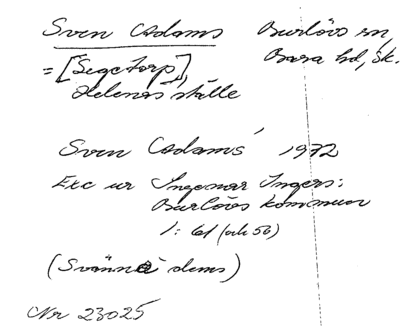 Sven Adams Burlövs sn,
Bara hd, Sk.
= [Segetorp],
Helenas ställe
Sven Adams' 1972
Exc ur Ingemar Ingers:
Burlövs kommun
1: 61 (och 56)
(Svänn dems)
Nr 23025